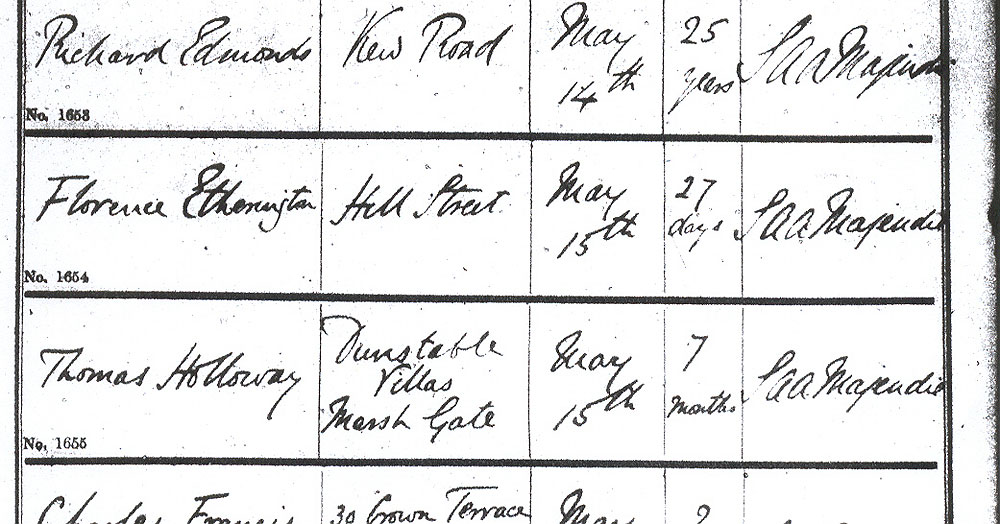 Richard Edmonds Kew Road May 14th 25 years S A A Majendie
No. 1653
Florence Etherington Hill Street May 15th 27 days S A A Majendie
No. 1654
Thomas Holloway Dunstable Villas Marsh Gate May 15th 7 Months S A A Majendie
No. 1655
Charles Francis 30 Crown Terrace May 2